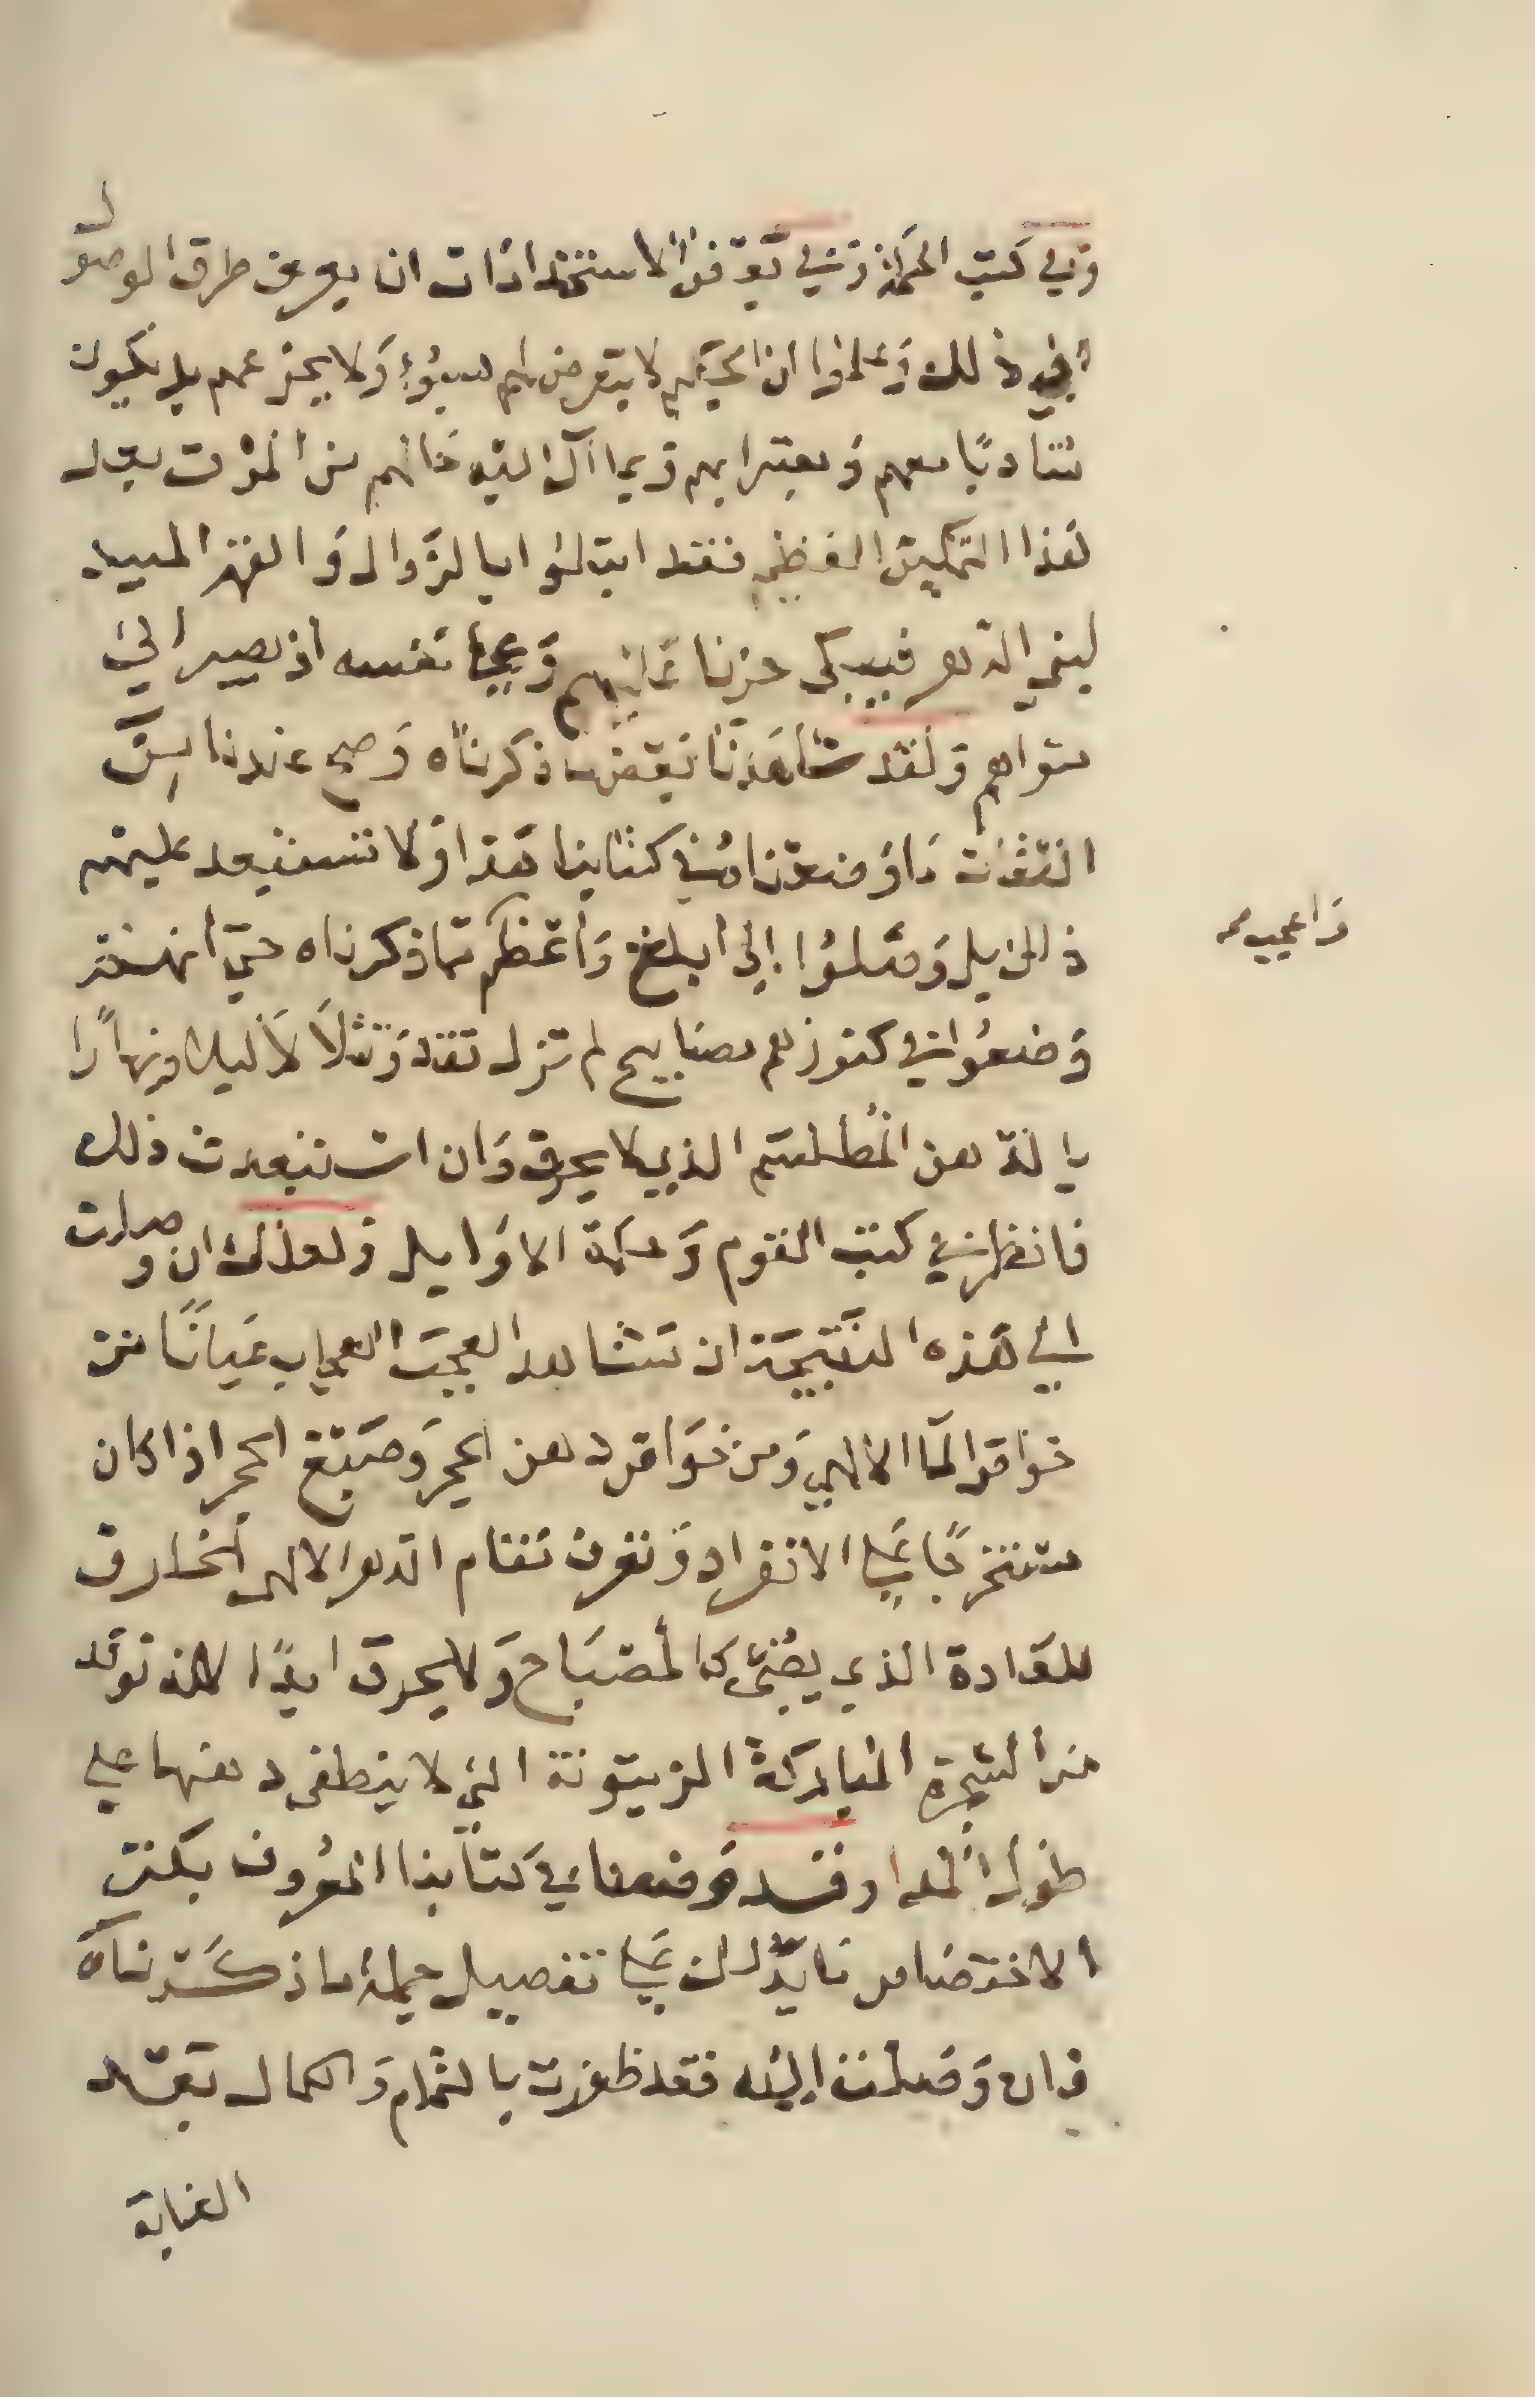 وفي كتب الحكمة وفي توقف الاستخدامات ان يعرف طرق الوصول
الي ذلك وعلموا ان الحكيم لا يتعرض لهم بسوء ولا يحزعهم بل يكون
متادبا معهم ومعتبرا بهم وبما آل اليه حالهم من الموت بعد
هذا التمكين العظيم فقد ابتلوا بالزوال والقهر المبيد
لبني الدهر فيبكي حزنا عليهم وعلي نفسه اذ يصير الي
سواهم ولقد شاهدنا بعض ما ذكرناه وصح عندنا من
الثقات ما اودعناه في كتابنا هذا ولا تستبعد عليهم
ذلك بل وصلوا الى ابلغ واعظم مما ذكرناه حتي انهم قد
وضعوا في كنوزهم مصابيح لم تزل تقد وتتلألأ ليلا ونهارا
بالدهن المطلسم الذي لا يحرق وان استبعدت ذلك
فانظر في كتب القوم وحكمة الاوايل ولعلك ان وصلت
الي هذه النتيجة ان تشاهد العجب العجاب عيانا من
خواص الما الالهي ومن خواص دهن الحجر وصبغ الحجر اذا كان
مستخرجا علي الانفراد وتعرف مقام الدهن الالهي الخارق
للعادة الذي يضئ كالمصباح ولا يحرق ابدا لانه توقد
من الشجرة المباركة الزيتونة التي لا ينطفي دهنها علي
طول المدا وقد وضعنا في كتابنا المعروف بكنز
الاختصاص ما يدلك علي تفصيل جملة ما ذكرناه
فان وصلت اليه فقد ظفرت بالتمام والكمال بعد
الغاية
واعجب من